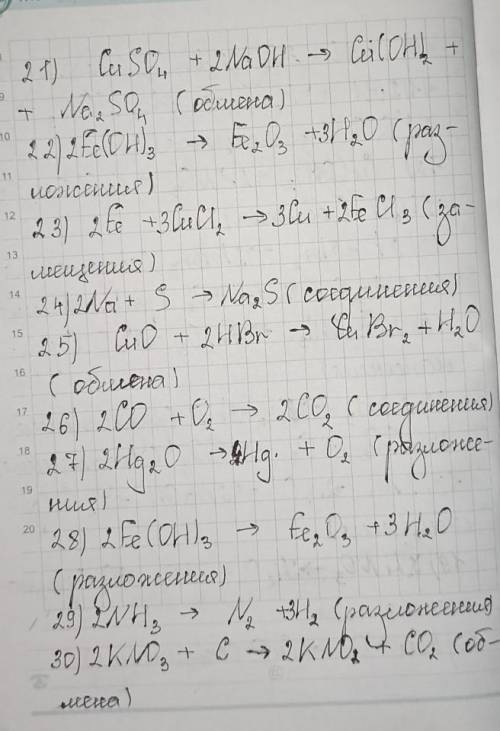 21) CuSO₄ + 2NaOH → Cu(OH)₂ +
+ Na₂SO₄ (обмена)
22) 2Fe(OH)₃ → Fe₂O₃ + 3H₂O (раз-
ложения)
23) 2Fe + 3CuCl₂ → 3Cu + 2FeCl₃ (за-
мещения)
24) 2Na + S → Na₂S (соединения)
25) CuO + 2HBr → CuBr₂ + H₂O
(обмена)
26) 2CO + O₂ → 2CO₂ (соединения)
27) 2Hg₂O → 4Hg + O₂ (разложе-
ния)
28) 2Fe(OH)₃ → Fe₂O₃ + 3H₂O
(разложения)
29) 2NH₃ → N₂ + 3H₂ (разложения)
30) 2KNO₃ + C → 2KNO₂ + CO₂ (об-
мена)
9
10
11
12
13
14
15
16
17
18
19
20